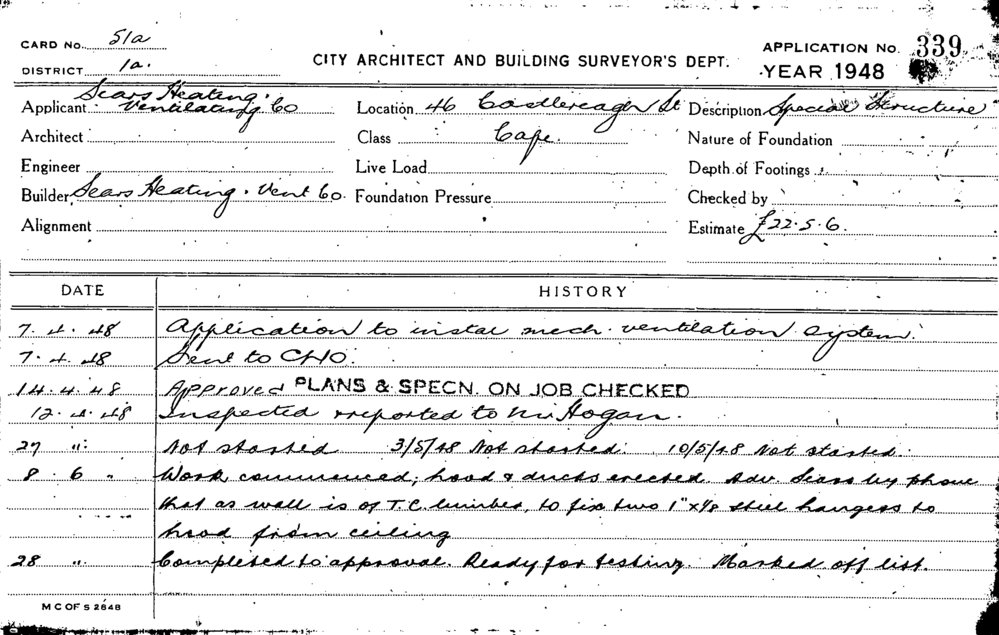 CARD No. 51a
DISTRICT 1a.
CITY ARCHITECT AND BUILDING SURVEYOR'S DEPT.
APPLICATION No. 339
YEAR 1948
Applicant Sears Heating. Ventilating Co
Location 46 Castlereagh St
Description Special Structure
Architect
Class Cafe.
Nature of Foundation
Engineer
Live Load
Depth of Footings
Builder Sears Heating. Vent Co.
Foundation Pressure
Checked by
Alignment
Estimate £22.5.6.
DATE HISTORY
7. 4. 48 Application to instal mech. ventilation system.
7. 4. 48 Sent to CHO.
14. 4. 48 Approved PLANS & SPECN. ON JOB CHECKED
12. 4. 48 Inspected & reported to Mr Hogan.
27 " Not started 3/5/48 Not started. 10/5/48 Not started.
8. 6 " Work commenced; hood & ducts erected. Adv. Sears by phone
that as wall is of T.C. lumber, to fix two 1" x 1/8 steel hangers to
hood from ceiling
28 " Completed to approval. Ready for testing. Marked off list.
M C OF S 2848